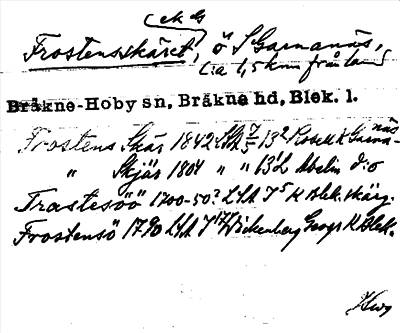 ek G
Frostensskäret, ö S Garnanäs,
ca 1,5 km från land
Bråkne-Hoby sn, Bråkne hd, Blek. l.
Frostens Skär 1842 LSA 7/5 13² K Garnanäs
" Skjär 1804 " " 13¹ Abelin d:o
Trastesöö 1700-50? LSA 7⁵ K Blek. skärg.
Frostensö 1790 LSA 7¹⁷ Wickenberg Geogr K Blek.
Hwg